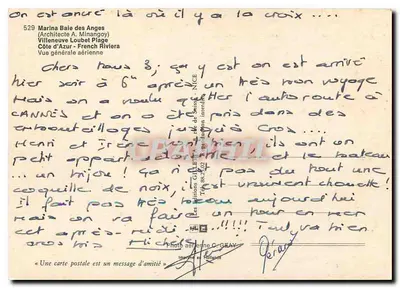 on est ancré là où il y a la croix ....
529 Marina Baie des Anges
(Architecte A. Minangoy)
Villeneuve Loubet Plage
Côte d'Azur - French Riviera
Vue générale aérienne
Chers tous 3, ça y est on est arrivé
hier soir à 6h après un très bon voyage
Mais on a voulu quitter l'autoroute à
CANNES et on a été pris dans des
embouteillages jusqu'à Cros ....
Henri et Irène ils ont un
petit appart et le bateau
... un bijou ! Ça n'est pas du tout une
coquille de noix, il est vraiment chouette !
il fait pas très beau aujourd'hui
Mais on va faire un tour en mer
cet après-midi ...!!!! Tout va bien
gros bis Michèle
Photo aérienne C. GRAY
Gérard
« Une carte postale est un message d'amitié »